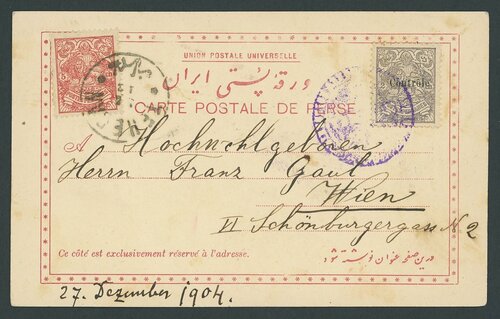 UNION POSTALE UNIVERSELLE
ورقه پستی ایران
CARTE POSTALE DE PERSE
Contrôle
TEHERAN
A Hochwohlgeboren
Herrn Franz Gaul
Wien
VI Schönburgergasse N 2
Ce côté est exclusivement réservé à l'adresse.
27. Dezember 1904.